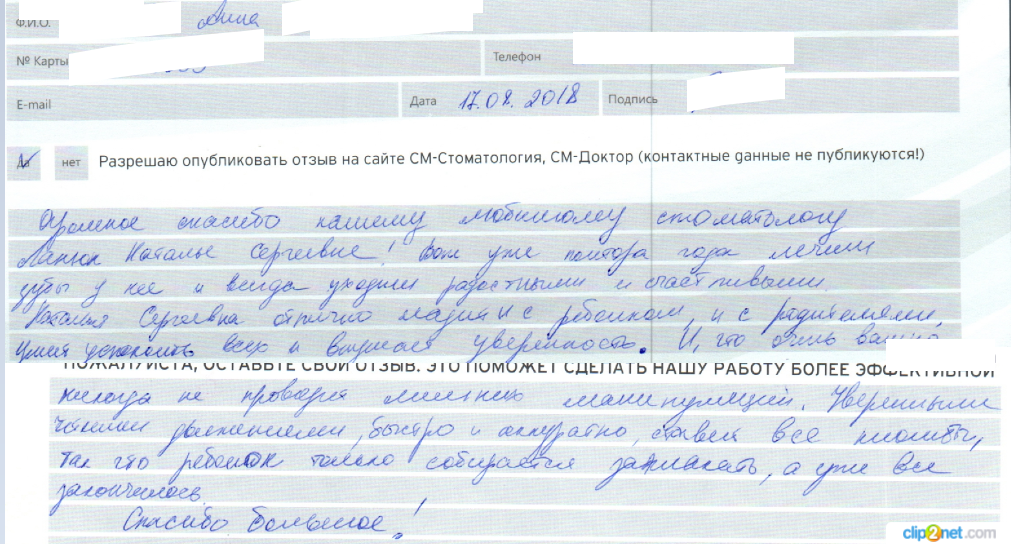 Ф.И.О. Анна
№ Карты Телефон
E-mail Дата 17.08.2018 Подпись
Да нет Разрешаю опубликовать отзыв на сайте СМ-Стоматология, СМ-Доктор (контактные данные не публикуются!)
Огромное спасибо нашему любимому стоматологу
Наталье Сергеевне! Вот уже полтора года лечим
зубы у нее и всегда уходим радостными и счастливыми.
Наталья Сергеевна отлично ладит и с ребенком, и с родителями,
умеет успокоить всех и внушает уверенность. И, что очень важно
ПОЖАЛУЙСТА, ОСТАВЬТЕ СВОЙ ОТЗЫВ. ЭТО ПОМОЖЕТ СДЕЛАТЬ НАШУ РАБОТУ БОЛЕЕ ЭФФЕКТИВНОЙ
никогда не проводит лишних манипуляций. Уверенными
четкими движениями, быстро и аккуратно, ставит все пломбы,
так что ребенок только собирается заплакать, а уже все
закончилось.
Спасибо большое!
clip2net.com